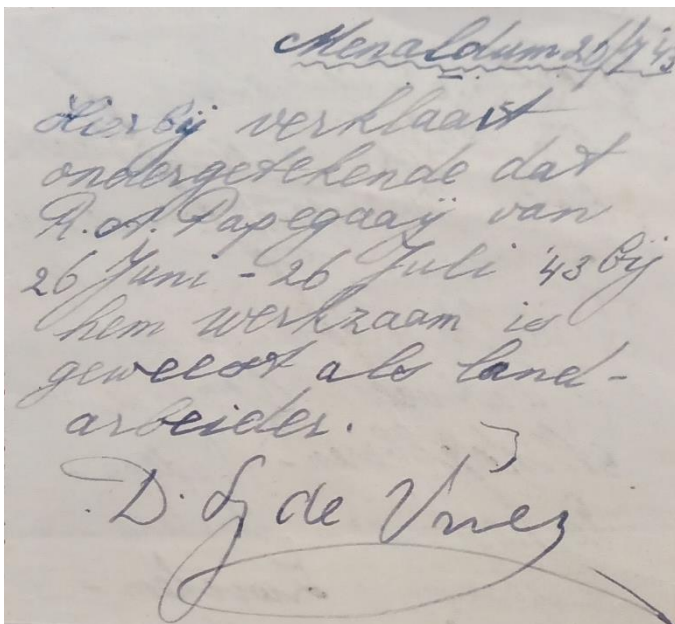 Menaldum 26/7 '43
Hierbij verklaart
ondergetekende dat
R. A. Papegaaij van
26 Juni - 26 Juli '43 bij
hem werkzaam is
geweest als land-
arbeider.
D. Sj de Vries